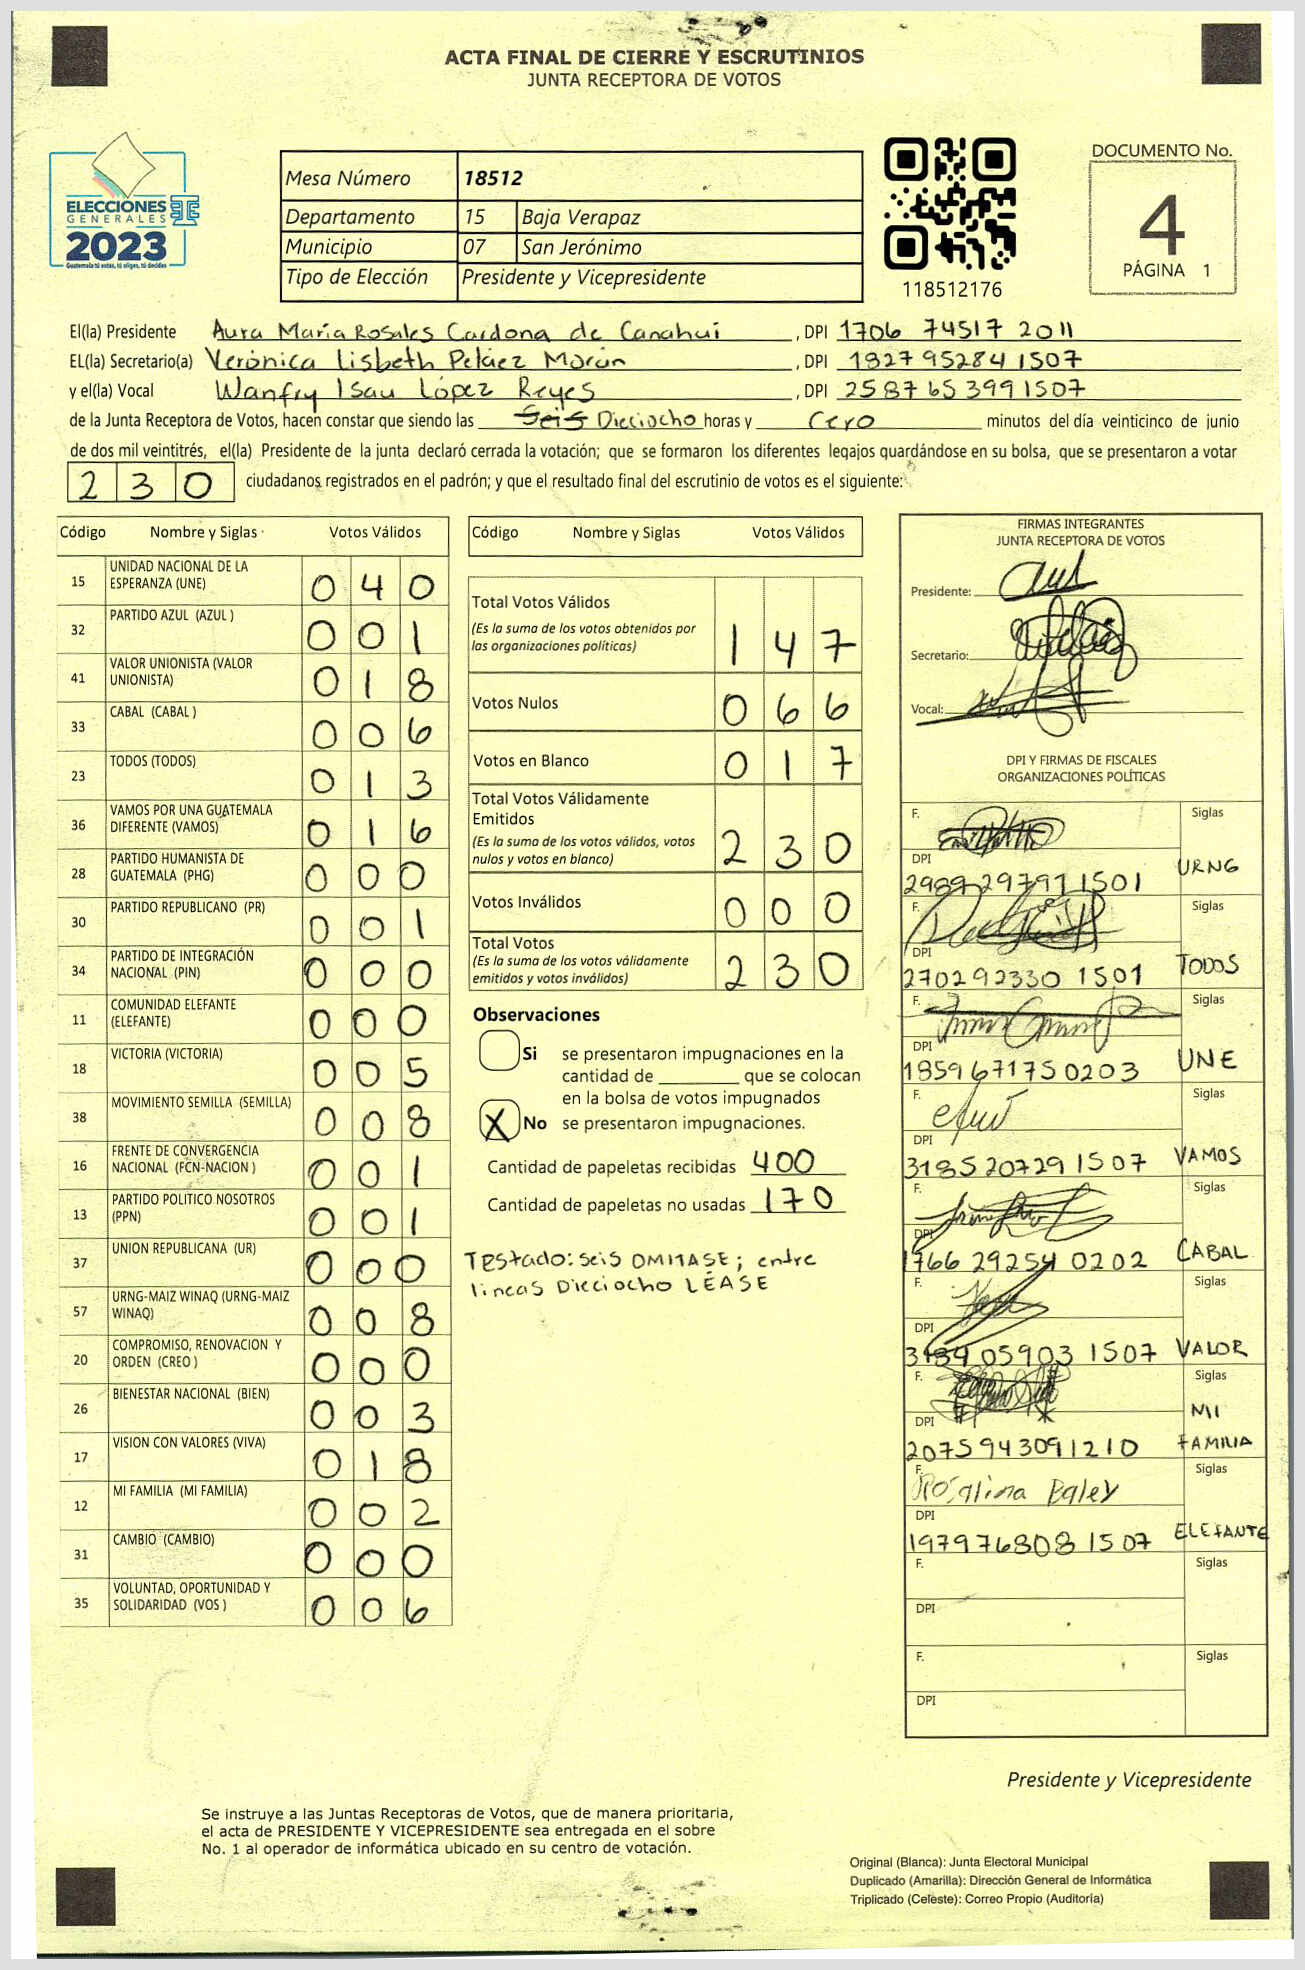 ACTA FINAL DE CIERRE Y ESCRUTINIOS
JUNTA RECEPTORA DE VOTOS
ELECCIONES
GENERALES
2023
Guatemala tú votas, tú eliges, tú decides
Mesa Número 18512
Departamento 15 Baja Verapaz
Municipio 07 San Jerónimo
Tipo de Elección Presidente y Vicepresidente
118512176
DOCUMENTO No.
4
PÁGINA 1
El(la) Presidente Aura María Rosales Cardona de Canahui , DPI 1706 74517 2011
EL(la) Secretario(a) Verónica Lisbeth Peláez Morán , DPI 1827 95284 1507
y el(la) Vocal Wanfry Isau López Reyes , DPI 2587 65399 1507
de la Junta Receptora de Votos, hacen constar que siendo las Seis Dieciocho horas y Cero minutos del día veinticinco de junio
de dos mil veintitrés, el(la) Presidente de la junta declaró cerrada la votación; que se formaron los diferentes legajos guardándose en su bolsa, que se presentaron a votar
230 ciudadanos registrados en el padrón; y que el resultado final del escrutinio de votos es el siguiente:
Código Nombre y Siglas Votos Válidos
15 UNIDAD NACIONAL DE LA ESPERANZA (UNE) 040
32 PARTIDO AZUL (AZUL ) 001
41 VALOR UNIONISTA (VALOR UNIONISTA) 018
33 CABAL (CABAL ) 006
23 TODOS (TODOS) 013
36 VAMOS POR UNA GUATEMALA DIFERENTE (VAMOS) 016
28 PARTIDO HUMANISTA DE GUATEMALA (PHG) 000
30 PARTIDO REPUBLICANO (PR) 001
34 PARTIDO DE INTEGRACIÓN NACIONAL (PIN) 000
11 COMUNIDAD ELEFANTE (ELEFANTE) 000
18 VICTORIA (VICTORIA) 005
38 MOVIMIENTO SEMILLA (SEMILLA) 008
16 FRENTE DE CONVERGENCIA NACIONAL (FCN-NACION ) 001
13 PARTIDO POLITICO NOSOTROS (PPN) 001
37 UNION REPUBLICANA (UR) 000
57 URNG-MAIZ WINAQ (URNG-MAIZ WINAQ) 008
20 COMPROMISO, RENOVACION Y ORDEN (CREO ) 000
26 BIENESTAR NACIONAL (BIEN) 003
17 VISION CON VALORES (VIVA) 018
12 MI FAMILIA (MI FAMILIA) 002
31 CAMBIO (CAMBIO) 000
35 VOLUNTAD, OPORTUNIDAD Y SOLIDARIDAD (VOS ) 006
Código Nombre y Siglas Votos Válidos
Total Votos Válidos
(Es la suma de los votos obtenidos por
las organizaciones políticas) 147
Votos Nulos 066
Votos en Blanco 017
Total Votos Válidamente
Emitidos
(Es la suma de los votos válidos, votos
nulos y votos en blanco) 230
Votos Inválidos 000
Total Votos
(Es la suma de los votos válidamente
emitidos y votos inválidos) 230
Observaciones
Si se presentaron impugnaciones en la
cantidad de ________ que se colocan
en la bolsa de votos impugnados
X No se presentaron impugnaciones.
Cantidad de papeletas recibidas 400
Cantidad de papeletas no usadas 170
Testado: seis OMITASE; entre
lineas Dieciocho LÉASE
FIRMAS INTEGRANTES
JUNTA RECEPTORA DE VOTOS
Presidente:
Secretario:
Vocal:
DPI Y FIRMAS DE FISCALES
ORGANIZACIONES POLÍTICAS
F. Siglas
DPI 2989 29797 1501 URNG
F. Siglas
DPI 2702 92330 1501 TODOS
F. Siglas
DPI 1859 67175 0203 UNE
F. Siglas
DPI 3185 20729 1507 VAMOS
F. Siglas
DPI 1766 29254 0202 CABAL
F. Siglas
DPI 3184 05903 1507 VALOR
F. Siglas
DPI 2075 94309 1210 MI FAMILIA
F. Rosalina Siglas
DPI 1979 76808 1507 ELEFANTE
F. Siglas
DPI
F. Siglas
DPI
Presidente y Vicepresidente
Se instruye a las Juntas Receptoras de Votos, que de manera prioritaria,
el acta de PRESIDENTE Y VICEPRESIDENTE sea entregada en el sobre
No. 1 al operador de informática ubicado en su centro de votación.
Original (Blanca): Junta Electoral Municipal
Duplicado (Amarilla): Dirección General de Informática
Triplicado (Celeste): Correo Propio (Auditoría)